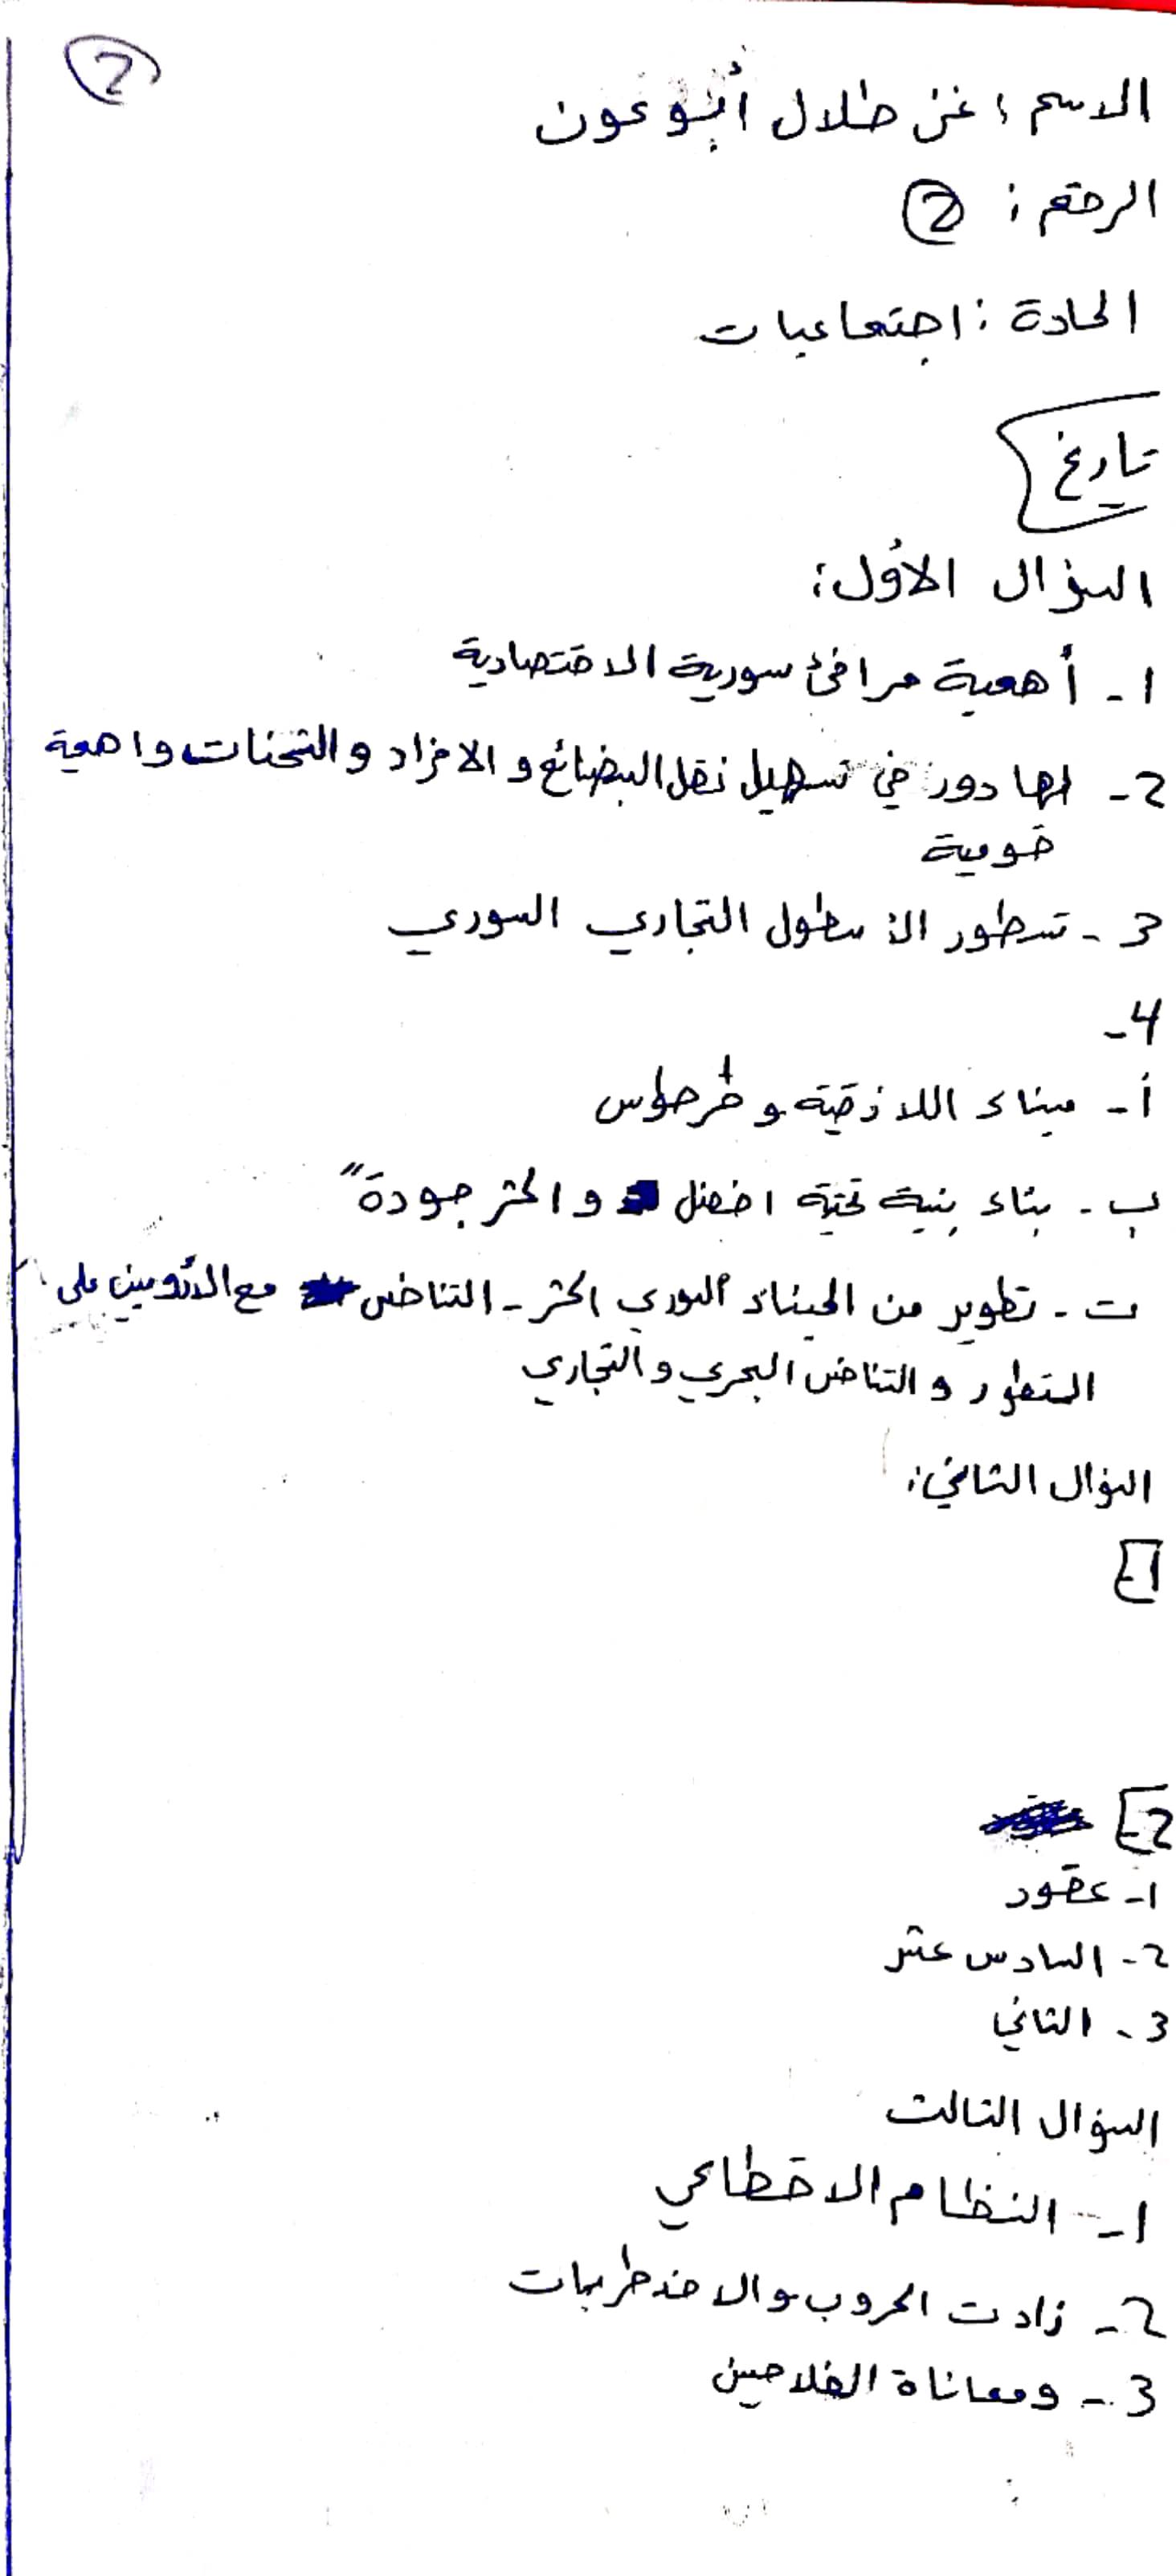 2
الاسم : غزل طلال أبو عون
الرقم : 2
المادة : اجتماعيات
تاريخ
السؤال الأول:
1- أهمية مرافئ سورية الاقتصادية
2- لها دور في تسهيل نقل البضائع و الافراد و الشحنات واهمية
قومية
3- تطور الأسطول التجاري السوري
4-
أ- ميناء اللاذقية و طرطوس
ب- بناء بنية تحتية افضل و اكثر جودة"
ت- تطوير من الميناء السوري اكثر - التنافس مع الأوروبيين على
التطور و التنافس البحري و التجاري
السؤال الثاني:
1-
2-
1- عقود
2- السادس عشر
3- الثاني
السؤال الثالث
1- النظام الاقطاعي
2- زادت الحروب والاضطربات
3- ومعاناة الفلاحين